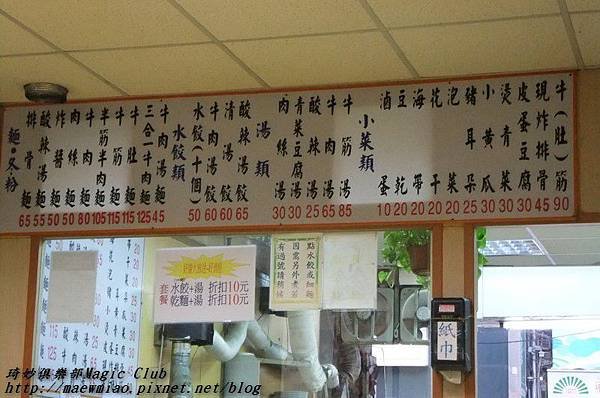 麵冬粉
排骨麵 65
酸辣湯麵 55
炸醬麵 50
肉絲麵 50
牛肉麵 80
半筋半肉麵 105
牛筋麵 115
牛肚麵 115
三合一牛肉麵 125
水餃類
水餃(十個) 50
牛肉湯餃 60
清湯餃 60
酸辣湯餃 65
湯類
肉絲湯 30
青菜豆腐湯 30
酸辣湯 25
牛肉湯 65
牛筋湯 85
小菜類
滷蛋 10
豆乾 20
海帶 20
花干 20
泡菜 20
豬耳朵 25
小黃瓜 30
燙青菜 30
皮蛋豆腐 30
現炸排骨 45
牛(肚)筋 90
套餐
水餃+湯 折扣10元
乾麵+湯 折扣10元
點水餃或細麵
因需另外煮
紙巾
琦妙俱樂部Magic Club
http://maewmiao.pixnet.net/blog